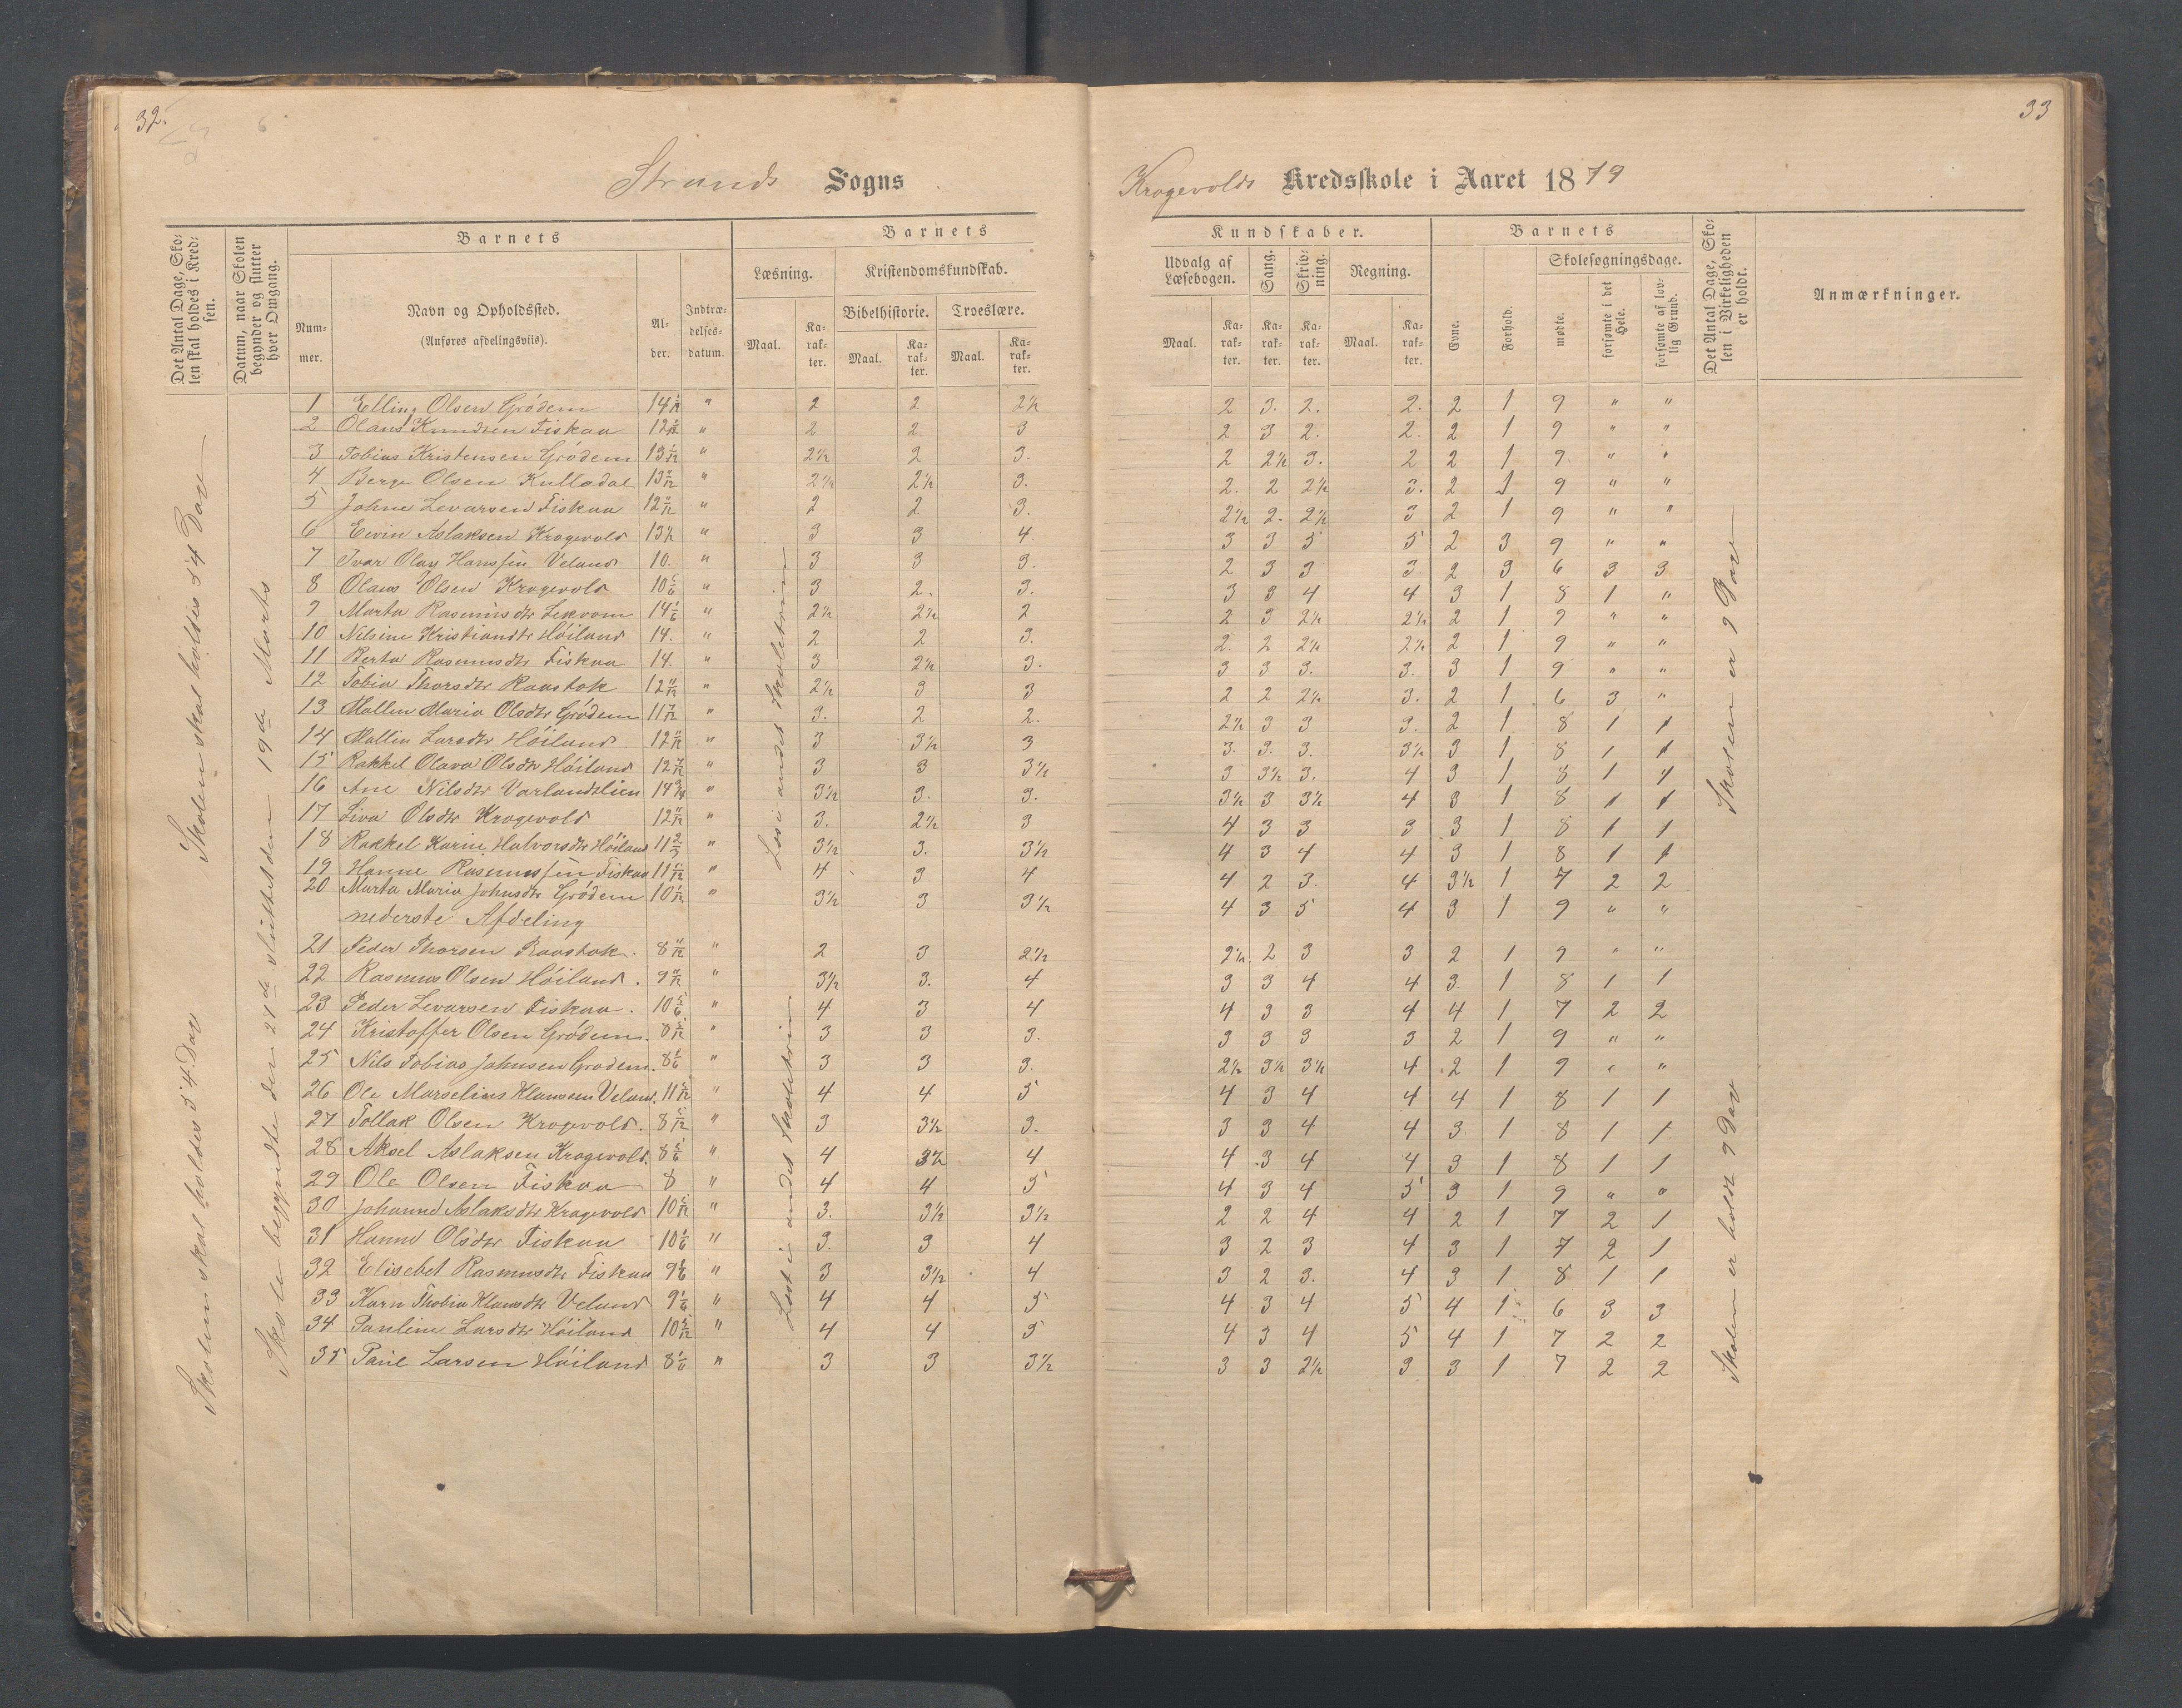 32.
33
Strands Sogns
Krogevolds Kredsskole i Aaret 1879
Det Antal Dage, Skolen skal holdes i Kredsen.
Datum, naar Skolen begynder og slutter hver Omgang.
Barnets
Nummer.
Navn og Opholdssted.
(Anføres afdelingsviis).
Alder.
Indtrædelsesdatum.
Barnets
Læsning.
Kristendomskundskab.
Bibelhistorie.
Troeslære.
Maal.
Karakter.
Maal.
Karakter.
Maal.
Karakter.
Kundskaber.
Udvalg af Læsebogen.
Sang.
Skrivning.
Regning.
Maal.
Karakter.
Karakter.
Karakter.
Maal.
Karakter.
Barnets
Evne.
Forhold.
Skolesøgningsdage.
mødte.
forsømte i det Hele.
forsømte af lovlig Grund.
Det Antal Dage, Skolen i Virkeligheden er holdt.
Anmærkninger.
Skolen skal holdes 54 Dage
Skolen skal holdes 54 Dage
Skole begyndte den 21de sluttet den 19de Marts
Læst i andet Skoletrin
Læst i andet Skoletrin
Skolen er 9 Dage
Skolen er holdt 9 Dage
1 Elling Olsen Grödem 14 " 2 2 2½ 2 3. 2. 2. 2 1 9 " "
2 Olaus Knudsen Fiskaa 12 " 2 2 3 2 3 2. 2. 2 1 9 " "
3 Tobias Kristensen Grödem 13 1/12 " 2½ 2 3. 2 2½ 3. 2 2 1 9 " "
4 Berge Olsen Kulladal 13 " 2½ 2½ 3. 2. 2 2½ 3. 2 1 9 " "
5 Johne Levarsen Fiskaa 12 11/12 " 2 2 3. 2½ 2. 2½ 3 2 1 9 " "
6 Eivin Aslaksen Krogevold 13½ " 3 3 4 3 3 5 5 2 3 9 " "
7 Ivar Olay Hanssen Veland 10. " 3 3 3. 2 3 3 3. 2 3 6 3 3
8 Olaus Olsen Krogevold 10 5/6 " 3 2. 3. 3 3 4 4 3 1 8 1 "
9 Marta Rasmusdtr Lekvam 14 1/6 " 2½ 2½ 2 2 3 2½ 2½ 2 1 9 " "
10 Nilsine Kristiandtr Höiland 14. " 2 2 3. 2. 2 2½ 2½ 2 1 9 " "
11 Berta Rasmusdtr Fiskaa 14. " 3 2½ 3. 3 3 3. 3. 3 1 9 " "
12 Tobia Thorsdtr Raastok 12 11/12 " 2½ 3 3 2 2 2½ 3. 2 1 6 3 "
13 Mallen Maria Olsdtr Grödem 11 7/12 " 3. 2 2. 2½ 3 3 3. 2 1 8 1 1
14 Mallin Larsdtr Höiland 12 11/12 " 3 3½ 3 3. 3. 3. 3½ 3 1 8 1 1
15 Rakkel Olava Olsdtr Höiland 12 7/12 " 3 3 3½ 3 3½ 3. 4 3 1 8 1 1
16 Ane Nilsdtr Varlandslien 14 " 3½ 3. 3. 3½ 3 3½ 4 3 1 8 1 1
17 Siva Olsdtr Krogevold 12 11/12 " 3. 2½ 3 4 3 3 3 3 1 8 1 1
18 Rakkel Karine Halvorsdtr Höiland 11 2/3 " 3½ 3. 3½ 4 3 4 4 3 1 8 1 1
19 Hanne Rasmussen Fiskaa 11 11/12 " 4 3 4 4 2 3. 4 3½ 1 7 2 2
20 Marta Maria Johnsdtr Grödem 10 1/12 " 3½ 3 3½ 4 3 5 4 3 1 9 " "
nederste Afdeling
21 Peder Thorsen Raastok. 8 11/12 " 2 3 2½ 2½ 2 3 3 2 1 9 " "
22 Rasmus Olsen Höiland. 9 11/12 " 3½ 3. 4 3 3 4 4 3. 1 8 1 1
23 Peder Levarsen Fiskaa. 10 5/6 " 4 3 4 4 3 3 4 4 1 7 2 2
24 Kristoffer Olsen Grödem. 8 5/12 " 3 3 3. 3 3 3 3 2 1 9 " "
25 Nils Tobias Johnsen Grödem. 8 1/6 " 3 3 3. 2½ 3½ 3½ 4 2 1 9 " "
26 Ole Marselius Klausen Veland. 11 5/12 " 4 4 5 4 3 4 4 4 1 8 1 1
27 Tollak Olsen Krogevold. 8 5/12 " 3 3½ 3. 3 3 4 4 3. 1 8 1 1
28 Aksel Aslaksen Krogevold. 8 5/6 " 4 3½ 4 4 3 4 4 3 1 8 1 1
29 Ole Olsen Fiskaa 8 " 4 4 5 4 3 4 5 3 1 9 " "
30 Johanne Aslaksdtr Krogevold 10 5/12 " 3. 3½ 3½ 2 2 4 4 2 1 7 2 1
31 Hanne Olsdtr Fiskaa 10 1/6 " 3. 3 4 3 2 3 4 3 1 7 2 1
32 Elisebet Rasmusdtr Fiskaa 9 1/6 " 3 3½ 4 3 2 3. 4 3 1 8 1 1
33 Karn Thobia Klausdtr Veland 9 1/6 " 4 4 5 4 3 4 5 4 1 6 3 3
34 Pauline Larsdtr Höiland 10 5/12 " 4 4 5 4 3 4 5 4 1 7 2 2
35 Paul Larsen Höiland 8 1/6 " 3 3 3½ 3 3 2½ 3 3 1 7 2 2